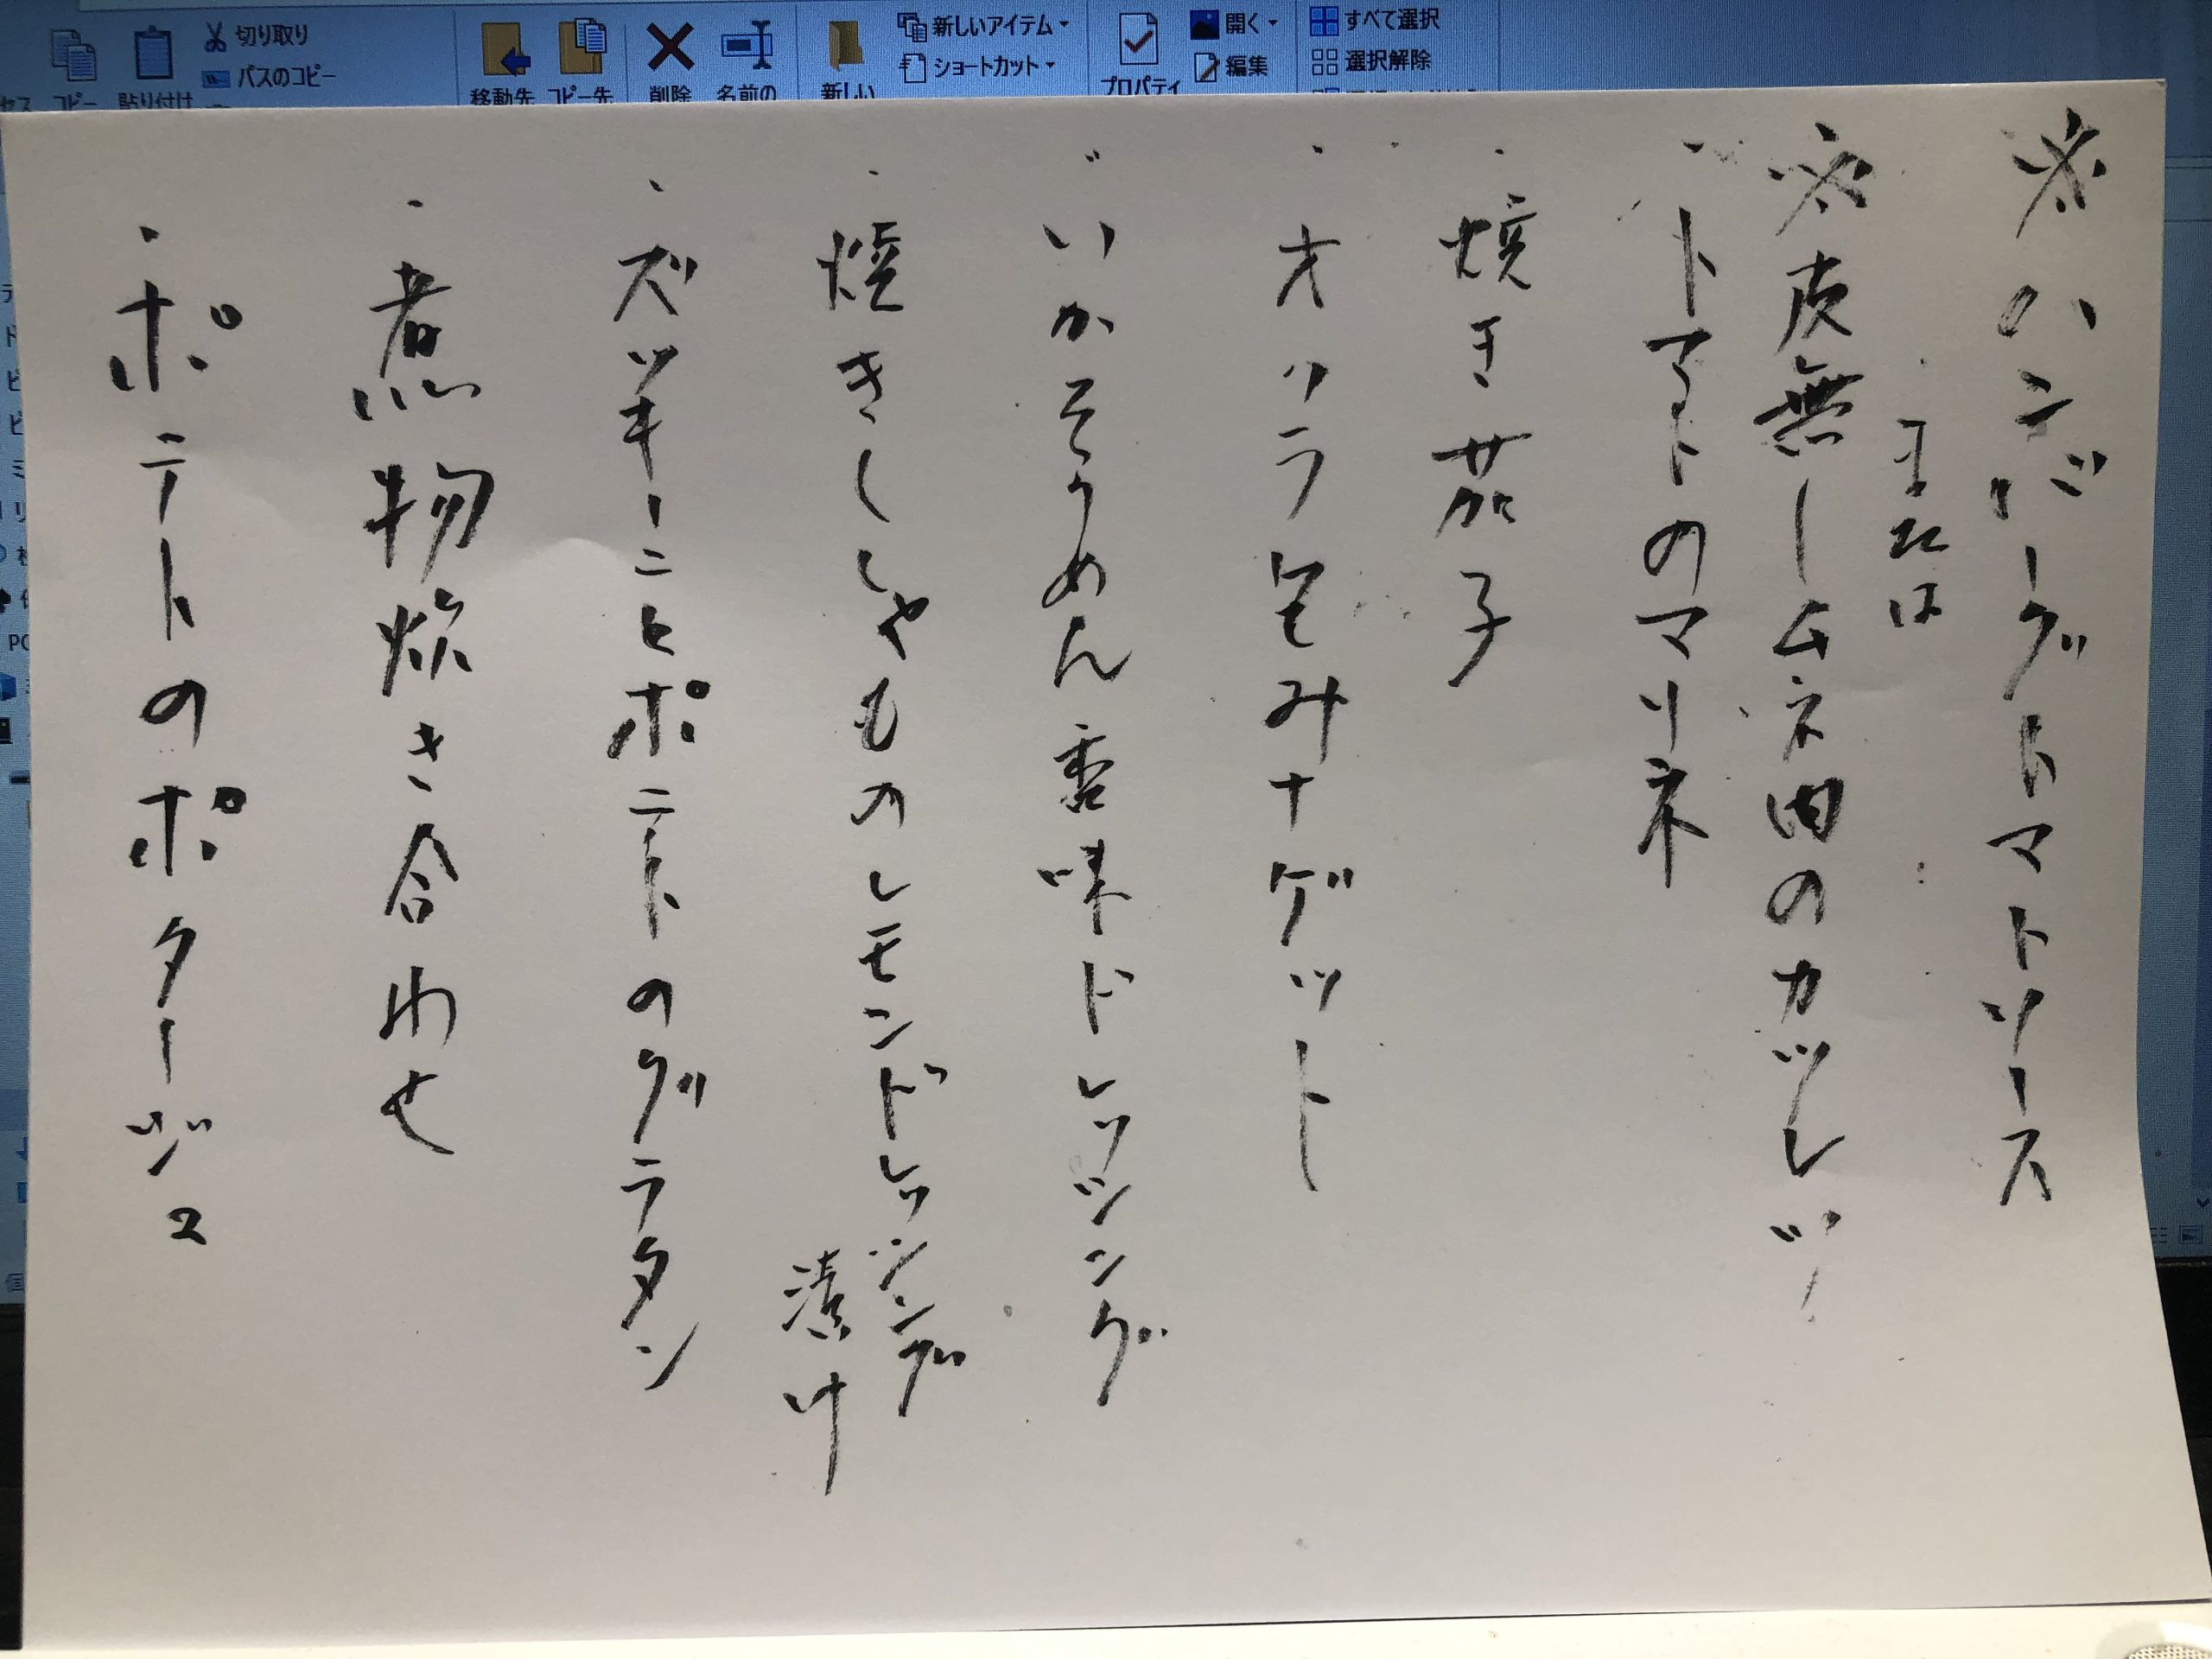 切り取り
パスのコピー
コピー
貼り付け
移動先
コピー先
削除
名前の
新しい
新しいアイテム
ショートカット
プロパティ
開く
編集
すべて選択
選択解除
※ハンバーグトマトソース
または
※皮無しムネ肉のカツレツ
・トマトのマリネ
・焼き茄子
・オクラ包みナゲット
・いかそうめん香味ドレッシング
・焼きししゃものレモンドレッシング
漬け
・ズッキーニとポテトのグラタン
・煮物炊き合わせ
・ポテトのポタージュ
PC